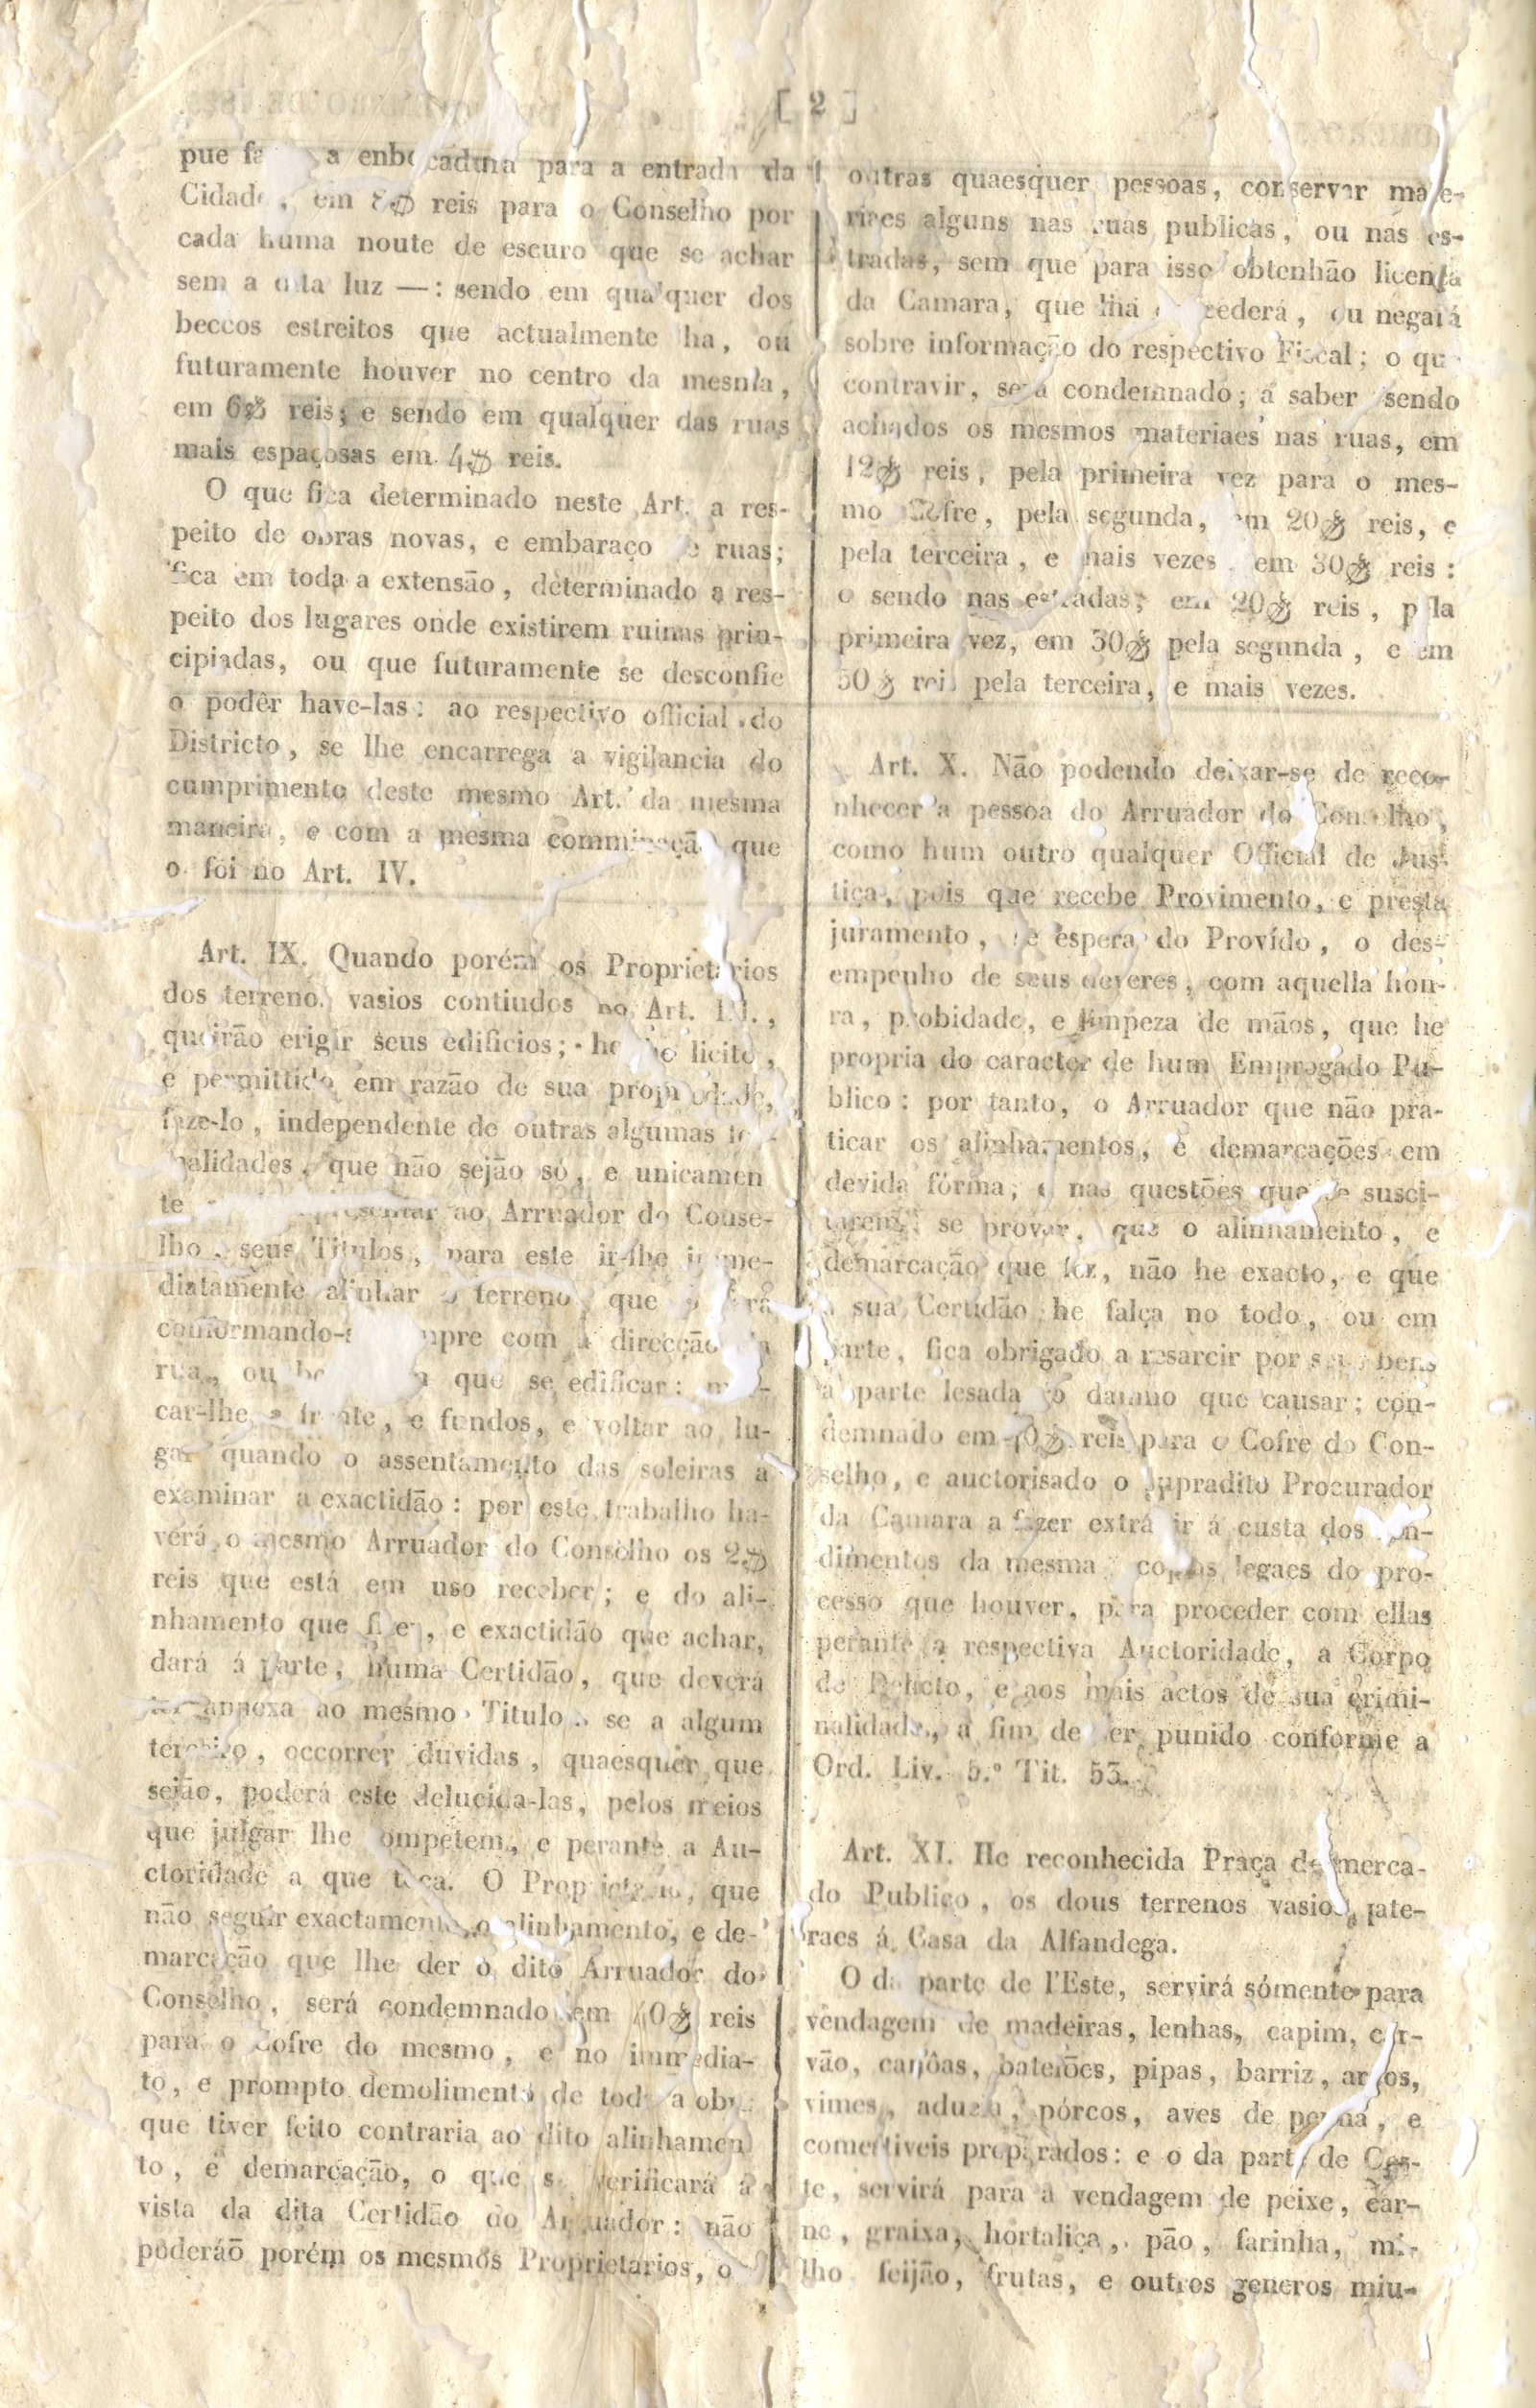 [ 2 ]
pue a para a entrada da
Cidade, em reis para o Conselho por
cada huma noute de escuro que se achar
sem a dita luz —: sendo em qualquer dos
beccos estreitos que actualmente ha, ou
futuramente houver no centro da mesma,
em 6$ reis; e sendo em qualquer das ruas
mais espaçosas em 4$ reis.
O que fica determinado neste Art. a res-
peito de obras novas, e embaraço ruas;
fica em toda a extensão, determinado a res-
peito dos lugares onde existirem ruinas prin-
cipiadas, ou que futuramente se desconfie
o podêr have-las: ao respectivo official do
Districto, se lhe encarrega a vigilancia do
cumprimento deste mesmo Art. da mesma
maneira, e com a mesma comminação que
o foi no Art. IV.
Art. IX. Quando porém os Proprietarios
dos terrenos vasios contiudos no Art.
queirão erigir seus edificios; licito,
e permittido em razão de sua propriedade,
faze-lo, independente de outras algumas
que não sejão só, e unicamen
te ao Arruador do Conse-
lho, seus Titulos, para este ir-lhe imme-
diatamente alinhar o terreno, que
com a direcção
rua, ou que se edificar:
car-lhe a frente, e fundos, e voltar ao lu-
gar quando o assentamento das soleiras a
examinar a exactidão: por este trabalho ha-
verá o mesmo Arruador do Conselho os 2$
reis que está em uso receber; e do ali-
nhamento que fizer, e exactidão que achar,
dará á parte, huma Certidão, que deverá
annexa ao mesmo Titulo. se a algum
terceiro, occorrer duvidas, quaesquer que
sejão, poderá este delucida-las, pelos meios
que julgar lhe competem, e perante a Au-
ctoridade a que toca. O Proprietario, que
não seguir exactamente o alinhamento, e de-
marcação que lhe der o dito Arruador do
Conselho, será condemnado em reis
para o Cofre do mesmo, e no immedia-
to, e prompto demolimento de toda a obra
que tiver feito contraria ao dito alinhamen
to, e demarcação, o que se verificará á
vista da dita Certidão do Arruador: não
poderáõ porém os mesmos Proprietarios, o
outras quaesquer pessoas, conservar mate-
riaes alguns nas ruas publicas, ou nas es-
tradas, sem que para isso obtenhão licença
da Camara, que lha concederá, ou negará
sobre informação do respectivo Fiscal; o que
contravir, será condemnado; a saber sendo
achados os mesmos materiaes nas ruas, em
12$ reis, pela primeira vez para o mes-
mo Cofre, pela segunda, em 20$ reis, e
pela terceira, e mais vezes em 30$ reis:
e sendo nas estradas, em 20$ reis, pela
primeira vez, em 30$ pela segunda, e em
50$ reis pela terceira, e mais vezes.
Art. X. Não podendo deixar-se de reco-
nhecer a pessoa do Arruador do Conselho,
como hum outro qualquer Official de Jus-
tiça, pois que recebe Provimento, e presta
juramento, se espera do Provído, o des-
empenho de seus deveres, com aquella hon-
ra, probidade, e limpeza de mãos, que he
propria do caracter de hum Empregado Pu-
blico: por tanto, o Arruador que não pra-
ticar os alinhamentos, e demarcações em
devida fórma, e nas questões que se susci-
tarem, se provar, que o alinhamento, e
demarcação que fez, não he exacto, e que
a sua Certidão he falça no todo, ou em
parte, fica obrigado a resarcir por seus bens
á parte lesada o damno que causar; con-
demnado em reis para o Cofre do Con-
selho, e auctorisado o supradito Procurador
da Camara a fazer extrahir á custa dos ren-
dimentos da mesma copias legaes do pro-
cesso que houver, para proceder com ellas
perante a respectiva Auctoridade, a Corpo
de Delicto, e aos mais actos de sua crimi-
nalidade, a fim de ser punido conforme a
Ord. Liv. 5.º Tit. 53.
Art. XI. He reconhecida Praça de merca-
do Publico, os dous terrenos vasios late-
raes á Casa da Alfandega.
O da parte de l'Este, servirá sómente para
vendagem de madeiras, lenhas, capim, car-
vão, canôas, bateiões, pipas, barriz, arcos,
vimes, aduela, pórcos, aves de penna, e
comestiveis preparados: e o da parte de Oes-
te, servirá para a vendagem de peixe, car-
ne, graixa, hortaliça, pão, farinha, mi-
lho feijão, frutas, e outros generos miu-